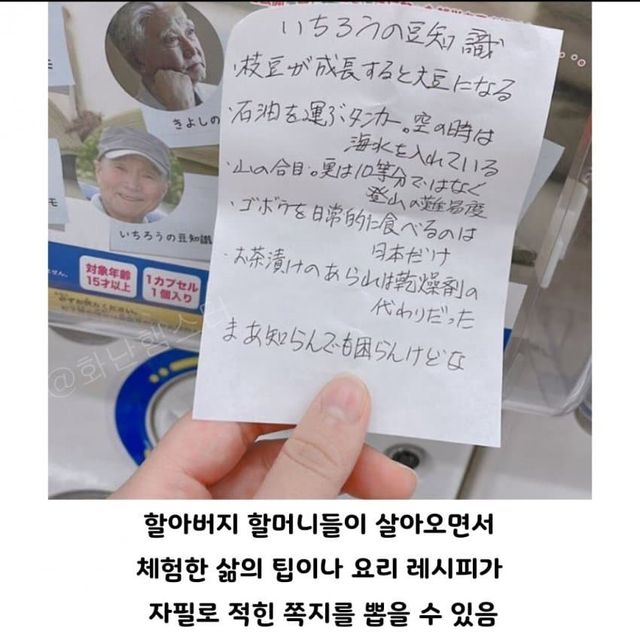 いちろうの豆知識
・枝豆が成長すると大豆になる
・石油を運ぶタンカー。空の時は
海水を入れている
・山の合目。実は10等分ではなく
登山の難易度
・ゴボウを日常的に食べるのは
日本だけ
・お茶漬けのあられは乾燥剤の
代わりだった
まあ知らんでも困らんけどな
きよしの
モ
いちろうの豆知識
対象年齢
15才以上
1カプセル
1個入り
@화난햄스터
할아버지 할머니들이 살아오면서
체험한 삶의 팁이나 요리 레시피가
자필로 적힌 쪽지를 뽑을 수 있음